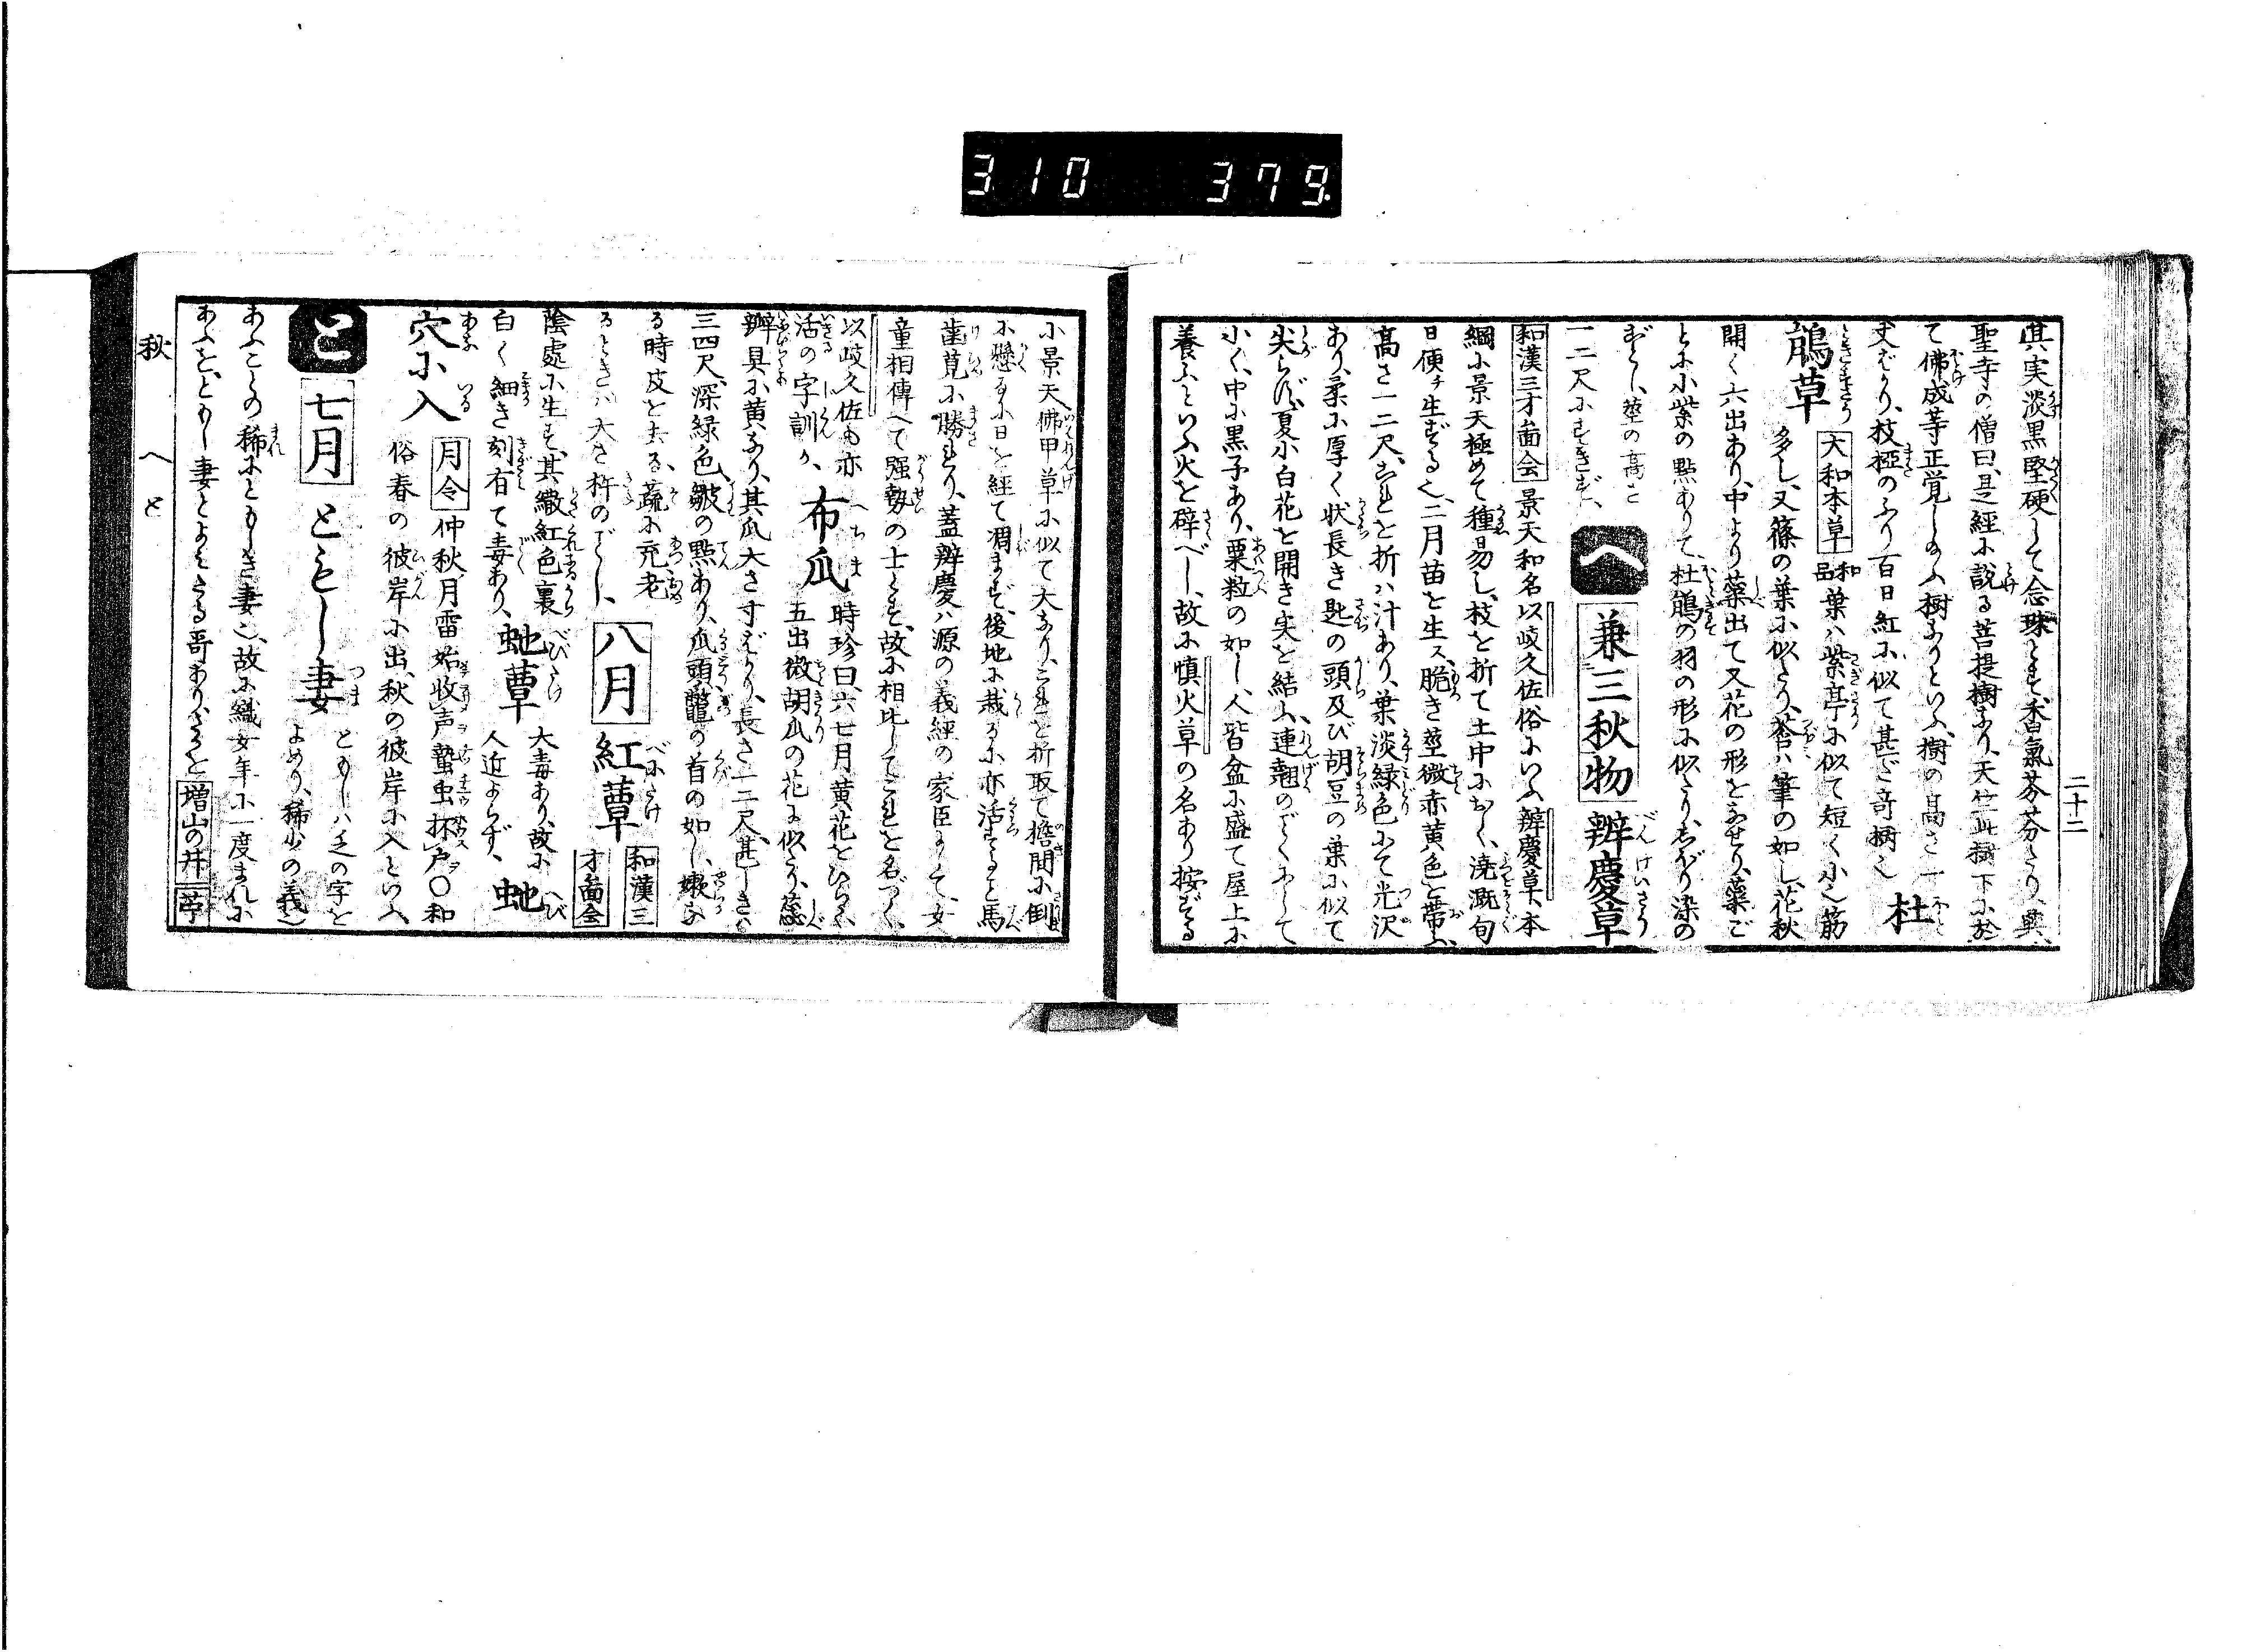 310 379
二十二
其実淡黒堅硬して念珠とす、香氣芬芬たり、興
聖寺の僧曰、是經に説る菩提樹なり、天竺此樹下に於
て佛成等正覚しのふ樹なりといふ、樹の髙さ一
丈ばかり、枝椏のふり百日紅に似て甚だ奇樹也 杜
鵑草 大和本草 和品 葉ハ紫亭に似て短く小也筋
多し、又篠の葉に似たり、莟ハ筆の如し、花秋
開く六出あり、中より蘂出て又花の形をなせり、蘂ご
とに小紫の點ありて、杜鵑の羽の形に似たり、しぼり染の
ごとし、莖の髙さ
一二尺にすぎず、 へ 兼三秋物 辨慶草
和漢三才畣会 景天和名以岐久佐俗にいふ辨慶草、本
綱に景天極めて種昜し、枝を折て土中におく、澆漑旬
日便チ生ずる也、二月苗を生ス、脆き莖微赤黄色を帶ふ、
髙さ一二尺、これを折ハ汁あり、葉淡緑色にて光沢
あり、柔に厚く状長き匙の頭及び胡豆の葉に似て
尖らず、夏小白花を開き実を結ふ、連翹のごくにして
小く、中に黒子あり、粟粒の如し、人皆盆に盛て屋上に
養ふといふ火を辟べし、故に慎火草の名あり按ずる
に景天佛甲草に似て大なり、これを折取て擔間に倒
に懸るに日を經て凋まず、後地に栽るに亦活すること馬
歯莧に勝れり、蓋辨慶ハ源の義經の家臣にして、女
童相傳へて强勢の士とす、故に相比してこれを名づく、
以岐久佐も亦
活の字訓か、 布瓜 時珍曰、六七月黄花をひらく、
五出微胡瓜の花に似たり、蕊
辨具に黄なり、其瓜大さ寸ばかり、長さ一二尺、甚しきハ
三四尺、深緑色、皺の點あり、瓜頭鼈の首の如し、嫩なる
る時皮を去る、蔬に充、老
るときハ大さ杵のごとし、 八月 紅蕈 和漢三才畣会
陰處に生ず、其繖紅色裏
白く細き刻有て毒あり、 虵蕈 大毒あり、故に
人近よらず、 虵
穴に入 月令 仲秋月雷始収声蟄虫坏戸〇和
俗春の彼岸に出、秋の彼岸に入といふ、
と 七月 ともし妻 ともしハ乏の字を
よめり、稀少の義也
あふことの稀にともしき妻也、故に織女年に一度まれに
あふを、ともし妻とよみたる哥あり、よるを 増山の井
秋 へと